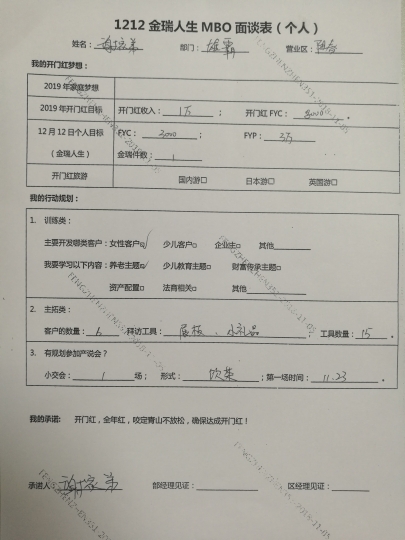 1212 金瑞人生 MBO 面谈表（个人）
姓名： 部门： 雄霸 营业区：
我的开门红梦想：
2019 年家庭梦想
2019 年开门红目标 开门红收入： 1万 ； 开门红 FYC： 8000 。
12 月 12 日个人目标 FYC： 2000 ； FYP： 2万
（金瑞人生） 金瑞件数： 1
开门红旅游 国内游□ 日本游□ 英国游□
我的行动规划：
1. 训练类：
主要开发哪类客户：女性客户☑ 少儿客户□ 企业主□ 其他
我要学习以下内容：养老主题☑ 少儿教育主题□ 财富传承主题□
资产配置□ 法商相关□ 其他
2. 主拓类：
客户的数量： 6 拜访工具： 展板、小礼品 工具数量： 15 。
3. 有规划参加产说会？
小交会： 1 场； 形式： 饮茶 ；第一场时间： 11.23 。
我的承诺： 开门红，全年红，咬定青山不放松，确保达成开门红！
承诺人： 部经理见证： 区经理见证：